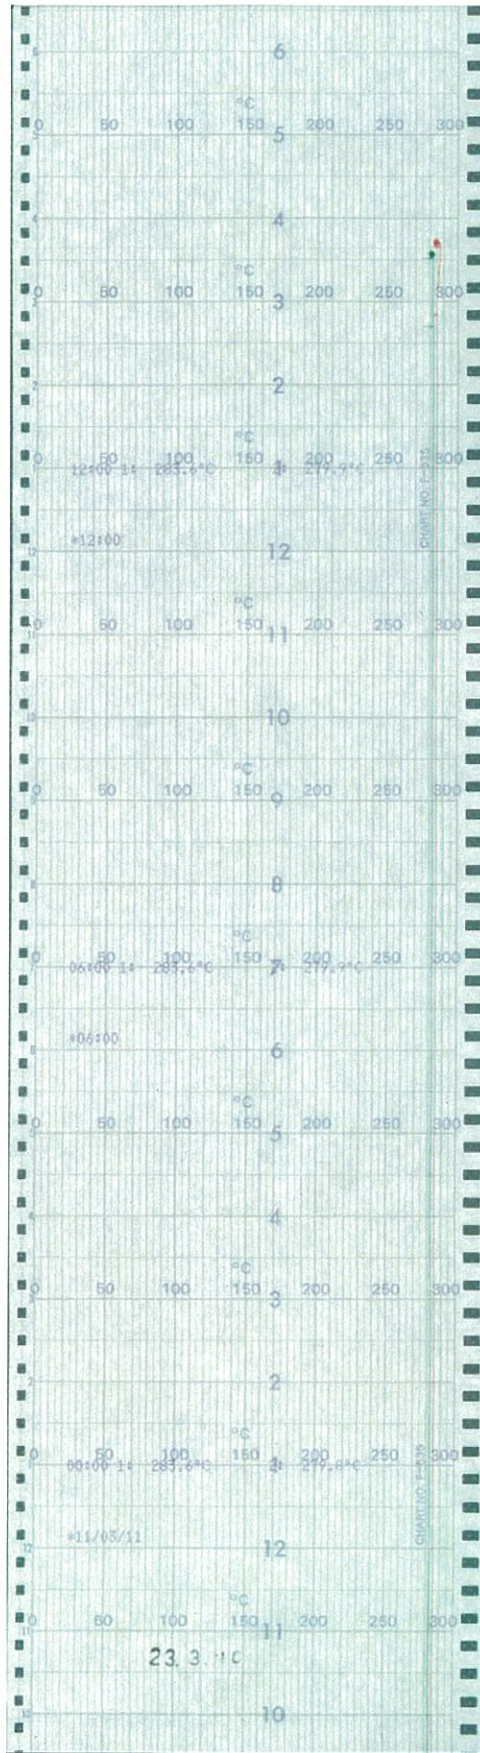 6
°C
0 50 100 150 200 250 300
5
4
°C
0 50 100 150 200 250 300
3
2
°C
0 50 100 150 200 250 300
12:00 1: 283.6°C 279.9°C
CHART NO. F-535
*12:00
12
°C
0 50 100 150 200 250 300
11
10
°C
0 50 100 150 200 250 300
9
8
°C
0 50 100 150 200 250 300
06:00 1: 283.6°C 7 279.9°C
*06:00
6
°C
0 50 100 150 200 250 300
5
4
°C
0 50 100 150 200 250 300
3
2
°C
0 50 100 150 200 250 300
00:00 1: 283.6°C 279.8°C
CHART NO. F-535
*11/03/11
12
°C
0 50 100 150 200 250 300
11
23. 3.
10